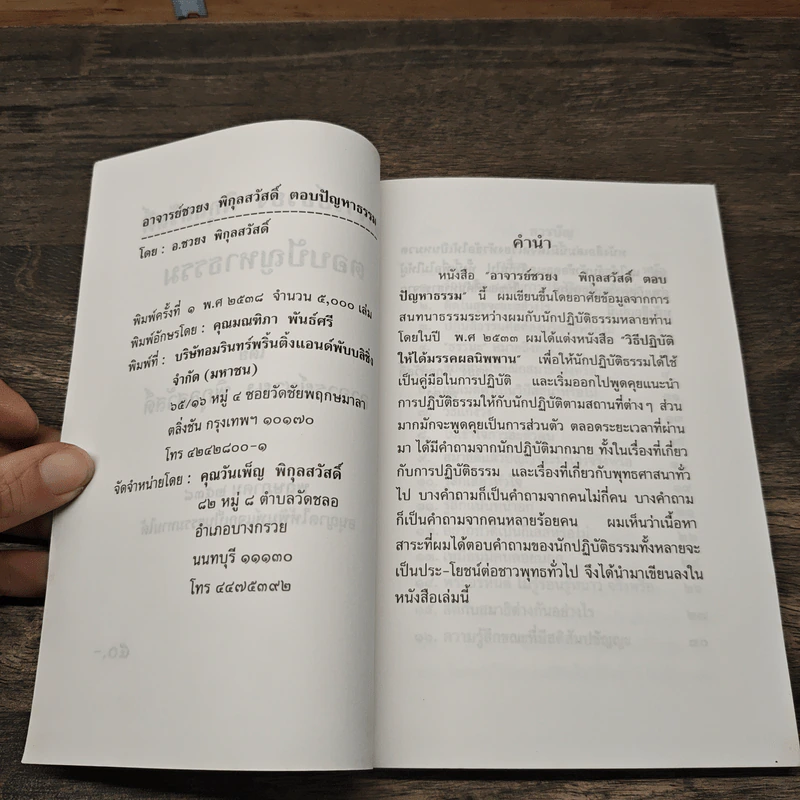 อาจารย์ชวยง พิกุลสวัสดิ์ ตอบปัญหาธรรม
โดย : อ.ชวยง พิกุลสวัสดิ์
พิมพ์ครั้งที่ ๑ พ.ศ ๒๕๓๘ จำนวน ๕,๐๐๐ เล่ม
พิมพ์อักษรโดย : คุณมณฑิภา พันธ์ศรี
พิมพ์ที่ : บริษัทอมรินทร์พริ้นติ้งแอนด์พับบลิชิ่ง
จำกัด (มหาชน)
๖๕/๑๖ หมู่ ๔ ซอยวัดชัยพฤกษมาลา
ตลิ่งชัน กรุงเทพฯ ๑๐๑๗๐
โทร ๔๒๔๒๘๐๐-๑
จัดจำหน่ายโดย : คุณวันเพ็ญ พิกุลสวัสดิ์
๘๒ หมู่ ๘ ตำบลวัดชลอ
อำเภอบางกรวย
นนทบุรี ๑๑๑๓๐
โทร ๔๔๗๕๓๙๒
คำนำ
หนังสือ "อาจารย์ชวยง พิกุลสวัสดิ์ ตอบ
ปัญหาธรรม" นี้ ผมเขียนขึ้นโดยอาศัยข้อมูลจากการ
สนทนาธรรมระหว่างผมกับนักปฏิบัติธรรมหลายท่าน
โดยในปี พ.ศ ๒๕๓๓ ผมได้แต่งหนังสือ "วิธีปฏิบัติ
ให้ได้มรรคผลนิพพาน" เพื่อให้นักปฏิบัติธรรมได้ใช้
เป็นคู่มือในการปฏิบัติ และเริ่มออกไปพูดคุยแนะนำ
การปฏิบัติธรรมให้กับนักปฏิบัติตามสถานที่ต่างๆ ส่วน
มากมักจะพูดคุยเป็นการส่วนตัว ตลอดระยะเวลาที่ผ่าน
มา ได้มีคำถามจากนักปฏิบัติมากมาย ทั้งในเรื่องที่เกี่ยว
กับการปฏิบัติธรรม และเรื่องที่เกี่ยวกับพุทธศาสนาทั่ว
ไป บางคำถามก็เป็นคำถามจากคนไม่กี่คน บางคำถาม
ก็เป็นคำถามจากคนหลายร้อยคน ผมเห็นว่าเนื้อหา
สาระที่ผมได้ตอบคำถามของนักปฏิบัติธรรมทั้งหลายจะ
เป็นประ-โยชน์ต่อชาวพุทธทั่วไป จึงได้นำมาเขียนลงใน
หนังสือเล่มนี้